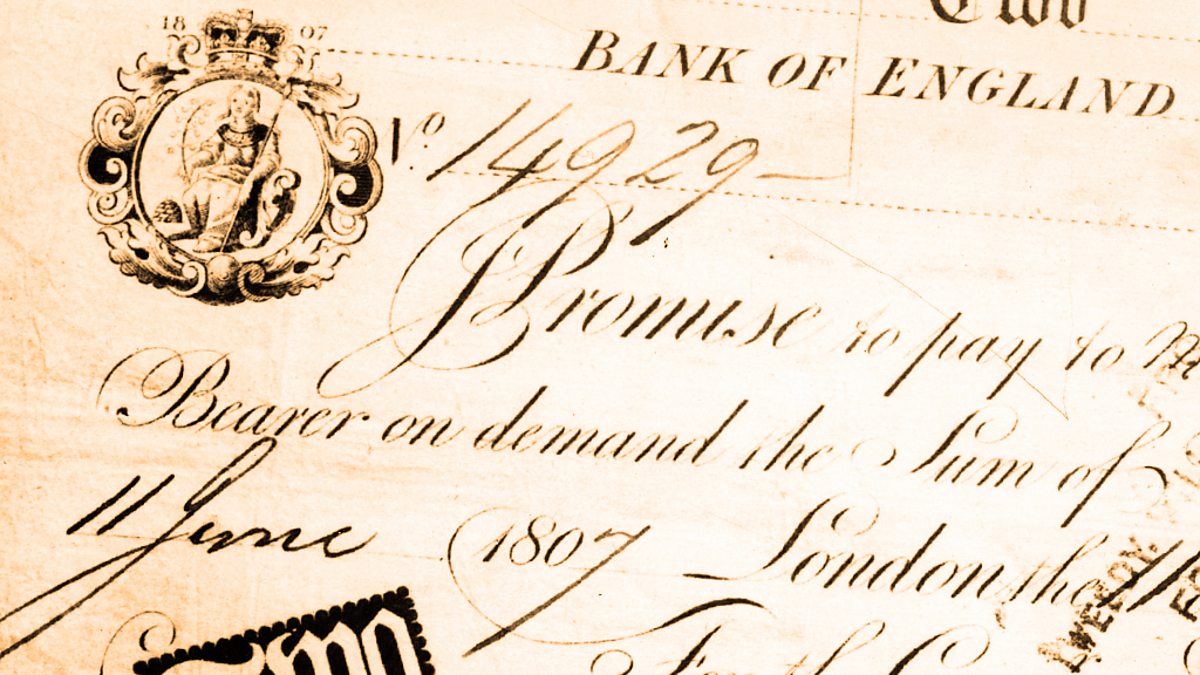 Two
18 07
BANK OF ENGLAND
No. 14929
I Promise to pay to M
Bearer on demand the Sum of
11 June 1807 London the 11
Two